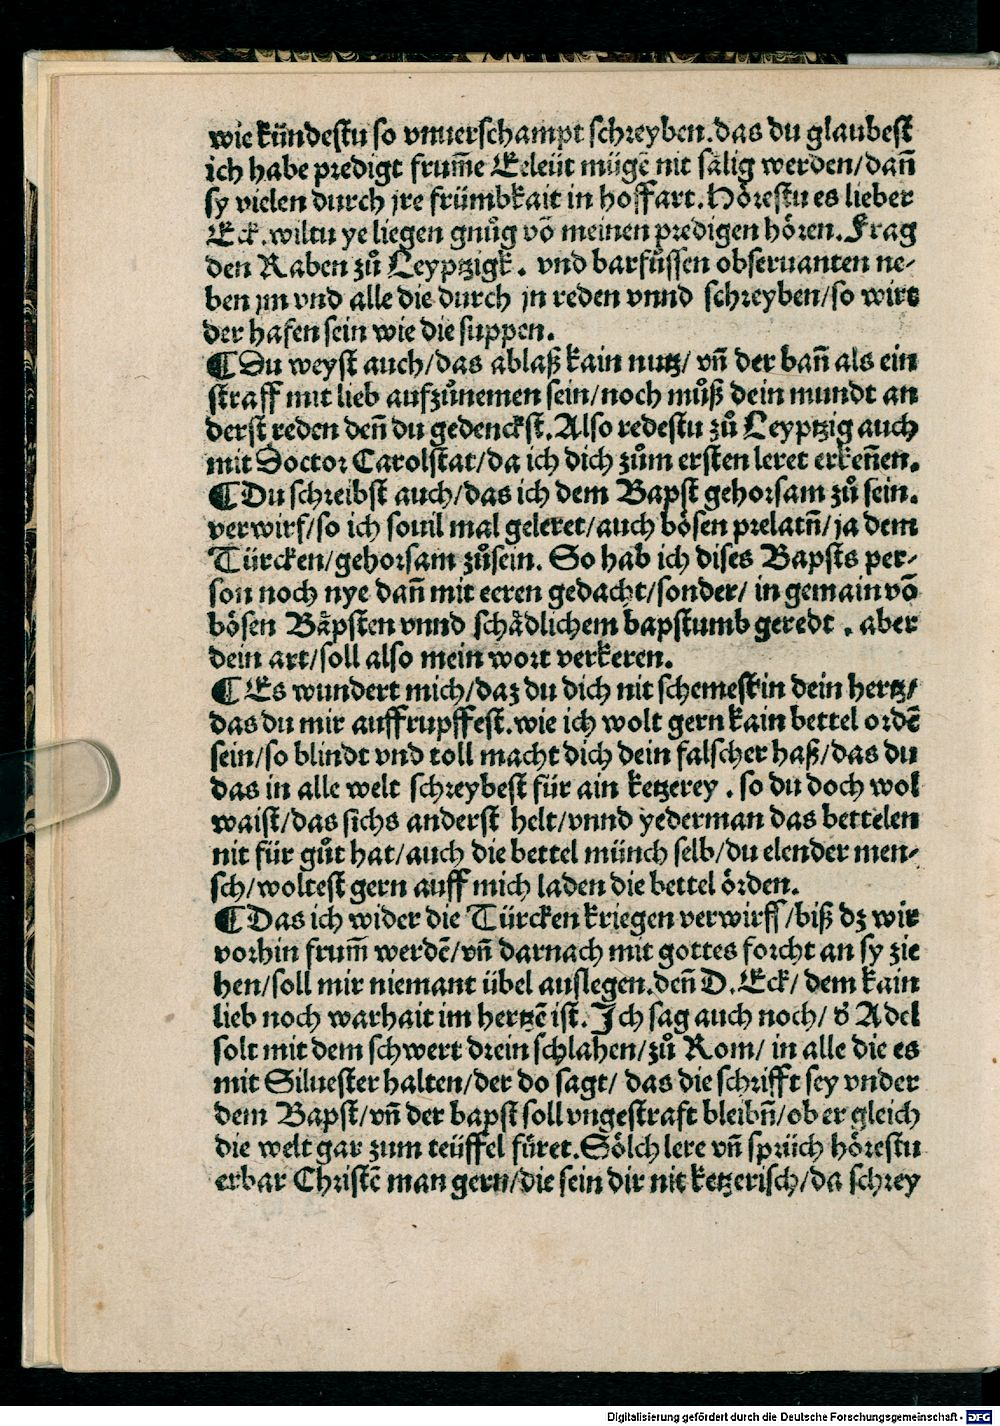 wie kündestu so vnuerschampt schreyben.das du glaubest
ich habe predigt frum̄e Eeleüt mügē nit sälig werden/dan̄
sy vielen durch jre frümbkait in hoffart.Hörestu es lieber
Eck.wiltu ye liegen gnůg vō meinen predigen hören.Frag
den Raben zů Leyptzigk. vnd barfüssen obseruanten ne-
ben jm vnd alle die durch jn reden vnnd schreyben/so wirt
der hafen sein wie die suppen.
¶Du weyst auch/das ablaß kain nutz/ vn̄ der ban̄ als ein
straff mit lieb aufzůnemen sein/noch můß dein mundt an
derst reden den̄ du gedenckst.Also redestu zů Leyptzig auch
mit Doctor Carolstat/da ich dich zům ersten leret erken̄en.
¶Du schreibst auch/das ich dem Bapst gehorsam zů sein.
verwirf/so ich souil mal geleret/auch bösen prelatn̄/ja dem
Türcken/gehorsam zůsein. So hab ich dises Bapsts per-
son noch nye dan̄ mit eeren gedacht/sonder/ in gemain vō
bösen Bäpsten vnnd schädlichem bapstumb geredt. aber
dein art/soll also mein wort verkeren.
¶Es wundert mich/daz du dich nit schemest in dein hertz/
das du mir auffrupffest.wie ich wolt gern kain bettel ordē
sein/so blindt vnd toll macht dich dein falscher haß/das du
das in alle welt schreybest für ain ketzerey. so du doch wol
waist/das sichs anderst helt/vnnd yederman das bettelen
nit für gůt hat/auch die bettel münch selb/du elender men-
sch/woltest gern auff mich laden die bettel örden.
¶Das ich wider die Türcken kriegen verwirff/biß dz wir
vorhin frum̄ werdē/vn̄ darnach mit gottes forcht an sy zie
hen/soll mir niemant übel auslegen.den̄ D.Eck/ dem kain
lieb noch warhait im hertzē ist.Ich sag auch noch/ d̄ Adel
solt mit dem schwert drein schlahen/zů Rom/ in alle die es
mit Siluester halten/der do sagt/ das die schrifft sey vnder
dem Bapst/vn̄ der bapst soll vngestraft bleibn̄/ob er gleich
die welt gar zum teüffel füret.Sölch lere vn̄ sprüch hörestu
erbar Christē man gern/die sein dir nit ketzerisch/da schrey
Digitalisierung gefördert durch die Deutsche Forschungsgemeinschaft - DFG